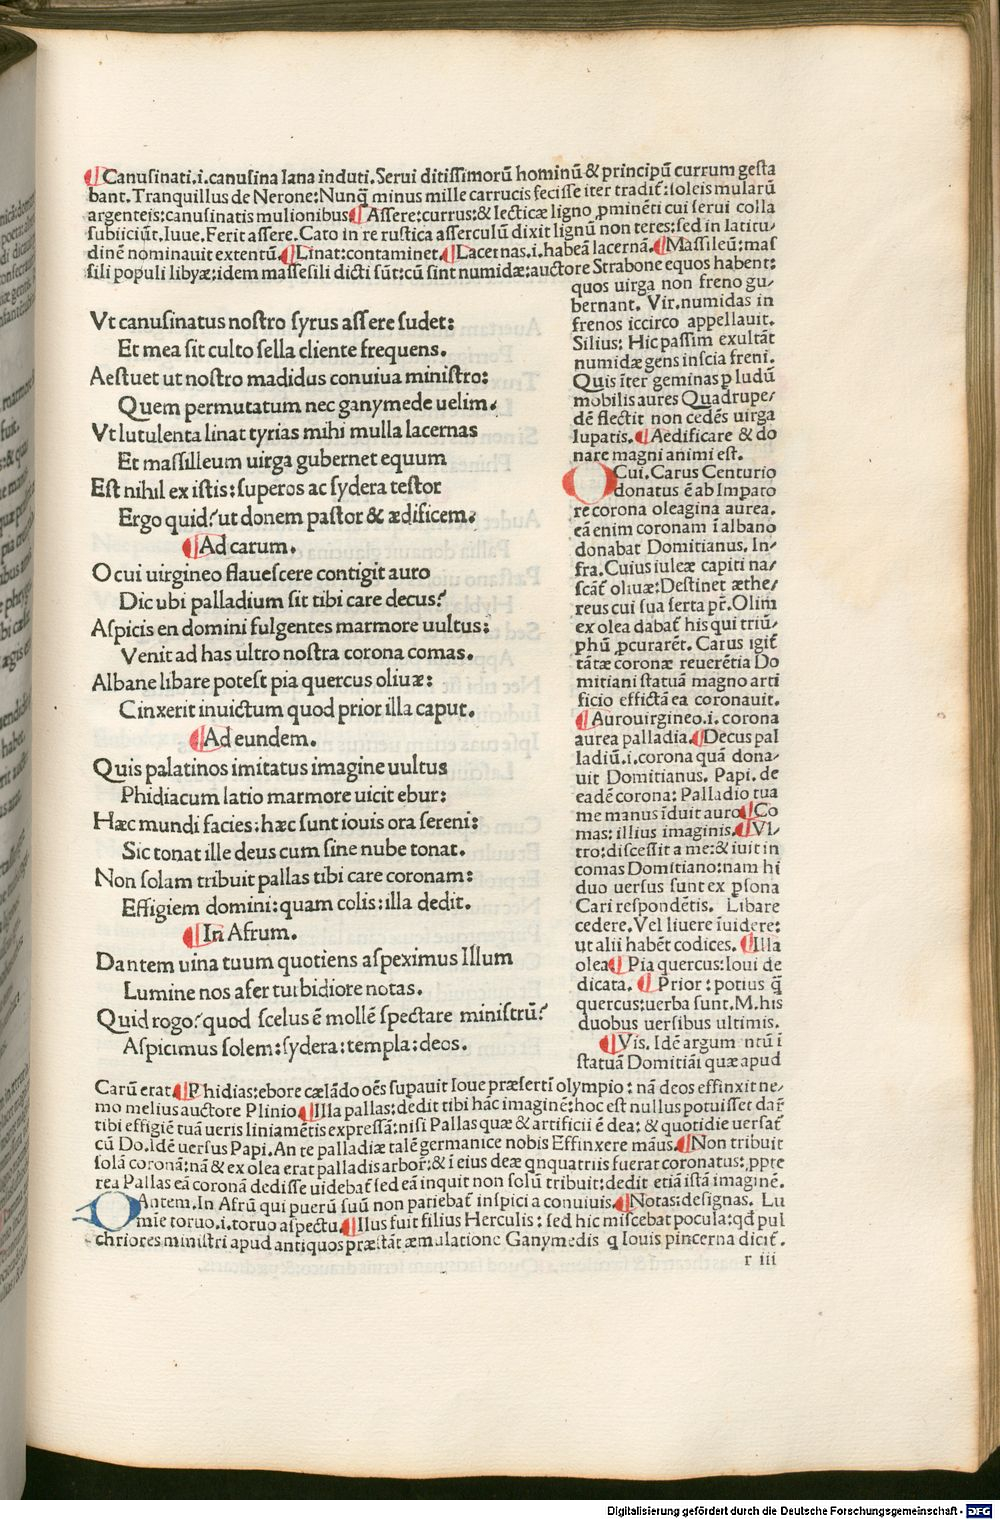 ¶Canusinati.i.canusina lana induti. Serui ditissimorũ hominũ & principũ currum gesta
bant. Tranquillus de Nerone: Nunq̃ minus mille carrucis fecisse iter tradit̃: soleis mularũ
argenteis: canusinatis mulionibus ¶Assere: currus: & lecticæ ligno ꝓminẽti cui serui colla
subiiciũt. Iuue. Ferit assere. Cato in re rustica asserculũ dixit lignũ non teres: sed in latitu/
dinẽ nominauit extentũ. ¶Linat: contaminet. ¶Lacernas.i. habeã lacernã. ¶Massileũ: mas
sili populi libyæ: idem massesili dicti sũt: cũ sint numidæ: auctore Strabone equos habent:
quos uirga non freno gu/
bernant. Vir. numidas in
frenos iccirco appellauit.
Silius: Hic passim exultãt
numidæ gens inscia freni.
Quis ĩter geminas ꝑ ludũ
mobilis aures Quadrupe/
dẽ flectit non cedẽs uirga
lupatis. ¶Aedificare & do
nare magni animi est.
Vt canusinatus nostro syrus assere sudet:
Et mea sit culto sella cliente frequens.
Aestuet ut nostro madidus conuiua ministro:
Quem permutatum nec ganymede uelim.
Vt lutulenta linat tyrias mihi mulla lacernas
Et massilleum uirga gubernet equum
Est nihil ex istis: superos ac sydera testor
Ergo quid? ut donem pastor & ædificem.
¶Ad carum.
O cui uirgineo flauescere contigit auro
Dic ubi palladium sit tibi care decus?
Aspicis en domini fulgentes marmore uultus:
Venit ad has ultro nostra corona comas.
Albane libare potest pia quercus oliuæ:
Cinxerit inuictum quod prior illa caput.
¶Ad eundem.
Quis palatinos imitatus imagine uultus
Phidiacum latio marmore uicit ebur:
Hæc mundi facies: hæc sunt iouis ora sereni:
Sic tonat ille deus cum sine nube tonat.
Non solam tribuit pallas tibi care coronam:
Effigiem domini: quam colis: illa dedit.
¶In Afrum.
Dantem uina tuum quotiens aspeximus Illum
Lumine nos afer turbidiore notas.
Quid rogo? quod scelus ẽ mollẽ spectare ministrũ?
Aspicimus solem: sydera: templa: deos.
O Cui. Carus Centurio
donatus ẽ ab Imparo
re corona oleagina aurea.
eã enim coronam ĩ albano
donabat Domitianus. In/
fra. Cuius iuleæ capiti na/
scãt̃ oliuæ: Destinet æthe/
reus cui sua serta pr̃. Olim
ex olea dabat̃ his qui triũ/
phũ ꝓcurarẽt. Carus igit̃
tãtæ coronæ reuerẽtia Do
mitiani statuã magno arti
ficio effictã ea coronauit.
¶Auro uirgineo.i. corona
aurea palladia. ¶Decus pal
ladiũ.i. corona quã dona/
uit Domitianus. Papi. de
eadẽ corona: Palladio tua
me manus ĩduit auro ¶Co
mas: illius imaginis. ¶Vl/
tro: discessit a me: & iuit in
comas Domistiano: nam hi
duo uersus sunt ex ꝑsona
Cari respondẽtis. Libare
cedere. Vel liuere ĩuidere:
ut alii habẽt codices. ¶Illa
olea ¶Pia quercus: Ioui de
dicata. ¶Prior: potius q̃
quercus: uerba sunt. M. his
duobus uersibus ultimis.
¶Vis. Idẽ argum ntũ ĩ
statuã Domitiãi quæ apud
Carũ erat ¶Phidias: ebore cælãdo oẽs supauit Ioue præsertĩ olympio: nã deos effinxit ne/
mo melius auctore Plinio ¶Illa pallas: dedit tibi hãc imaginẽ: hoc est nullus potuisset dar̃
tibi effigiẽ tuã ueris liniamẽtis expressã: nisi Pallas quæ & artificii ẽ dea: & quotidie uersat̃
cũ Do. Idẽ uersus Papi. An te palladiæ talẽ germanice nobis Effinxere mãus. ¶Non tribuit
solã coronã: nã & ex olea erat palladis arbor̃: & ĩ eius deæ qnquatriis fuerat coronatus: ꝓpte
rea Pallas eã coronã dedisse uidebat̃ sed eã inquit non solũ tribuit: dedit etiã istã imaginẽ.
D Antem. In Afrũ qui puerũ suũ non pariebat̃ inspici a conuiuis. ¶Notas: designas. Lu
mĩe toruo.i. toruo aspectu. ¶Illus fuit filius Herculis: sed hic miscebat pocula: qd̃ pul
chriores ministri apud antiquos præstãt æmulatione Ganymedis q Iouis pincerna dicit̃.
r iii
Digitalisierung gefördert durch die Deutsche Forschungsgemeinschaft - DFG